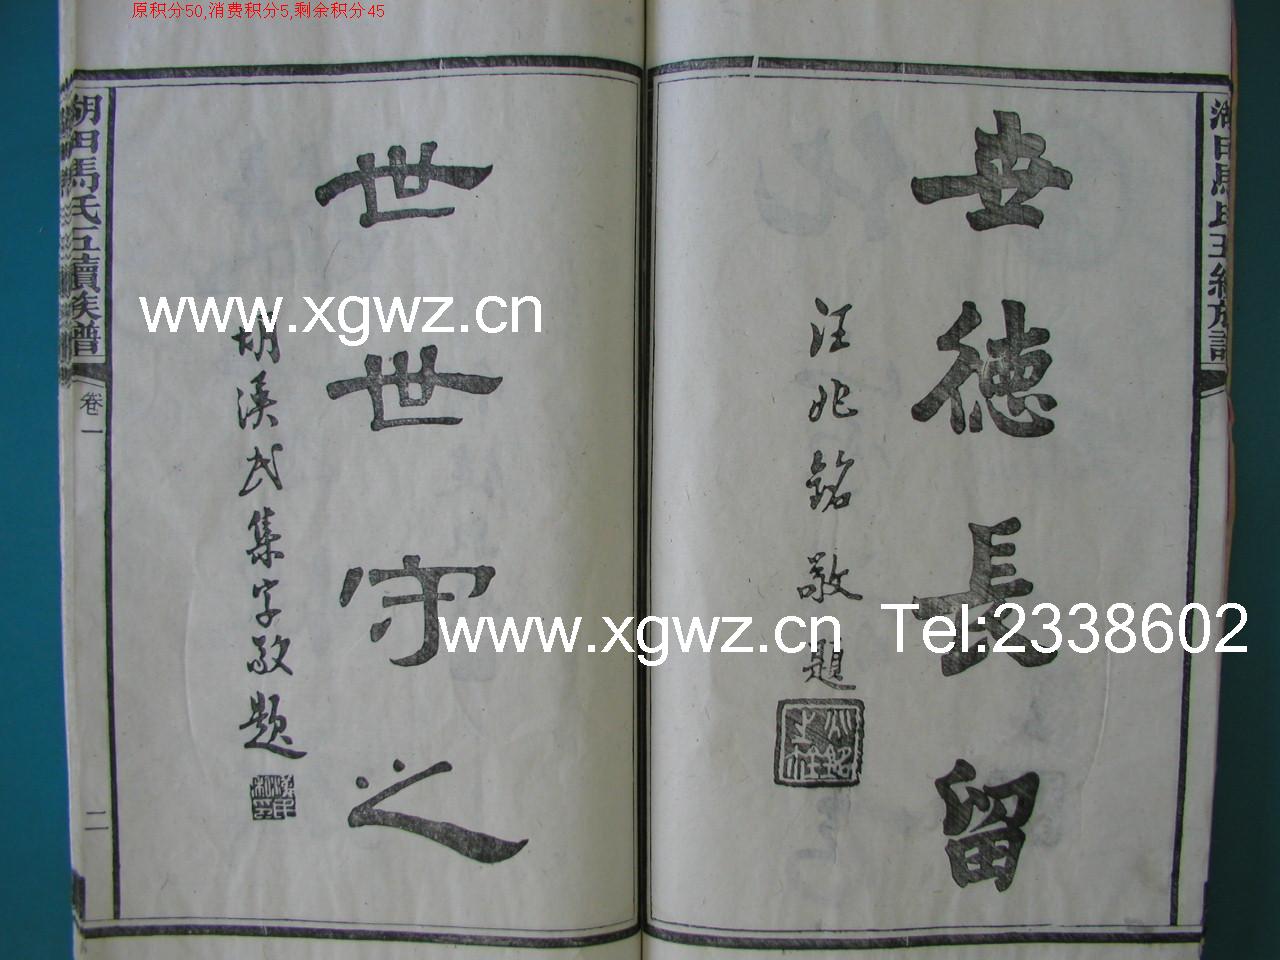 原积分50,消费积分5,剩余积分45
世德長留
汪兆銘敬題
兆銘之鉨
世世守之
胡漢民集字敬题
湖田馬氏五續族譜
卷一
二
湖田馬氏五續族譜
www.xgwz.cn
www.xgwz.cn Tel:2338602